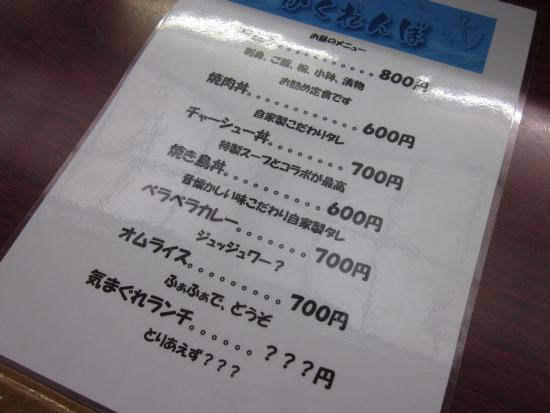 かくれんぼ
お昼のメニュー
。。。。。。。。。。。800円
刺身、ご飯、椀、小鉢、漬物
お勧め定食です
焼肉丼。。。。。。。。。。。600円
自家製こだわりタレ
チャーシュー丼。。。。。。。。700円
特製スープとコラボが最高
焼き鳥丼。。。。。。。。。。600円
昔懐かしい味こだわり自家製タレ
ベラベラカレー。。。。。。。700円
ジュッジュワー？
オムライス。。。。。。。。。700円
ふぁふぁで、どうぞ
気まぐれランチ。。。。。。？？？円
とりあえず？？？